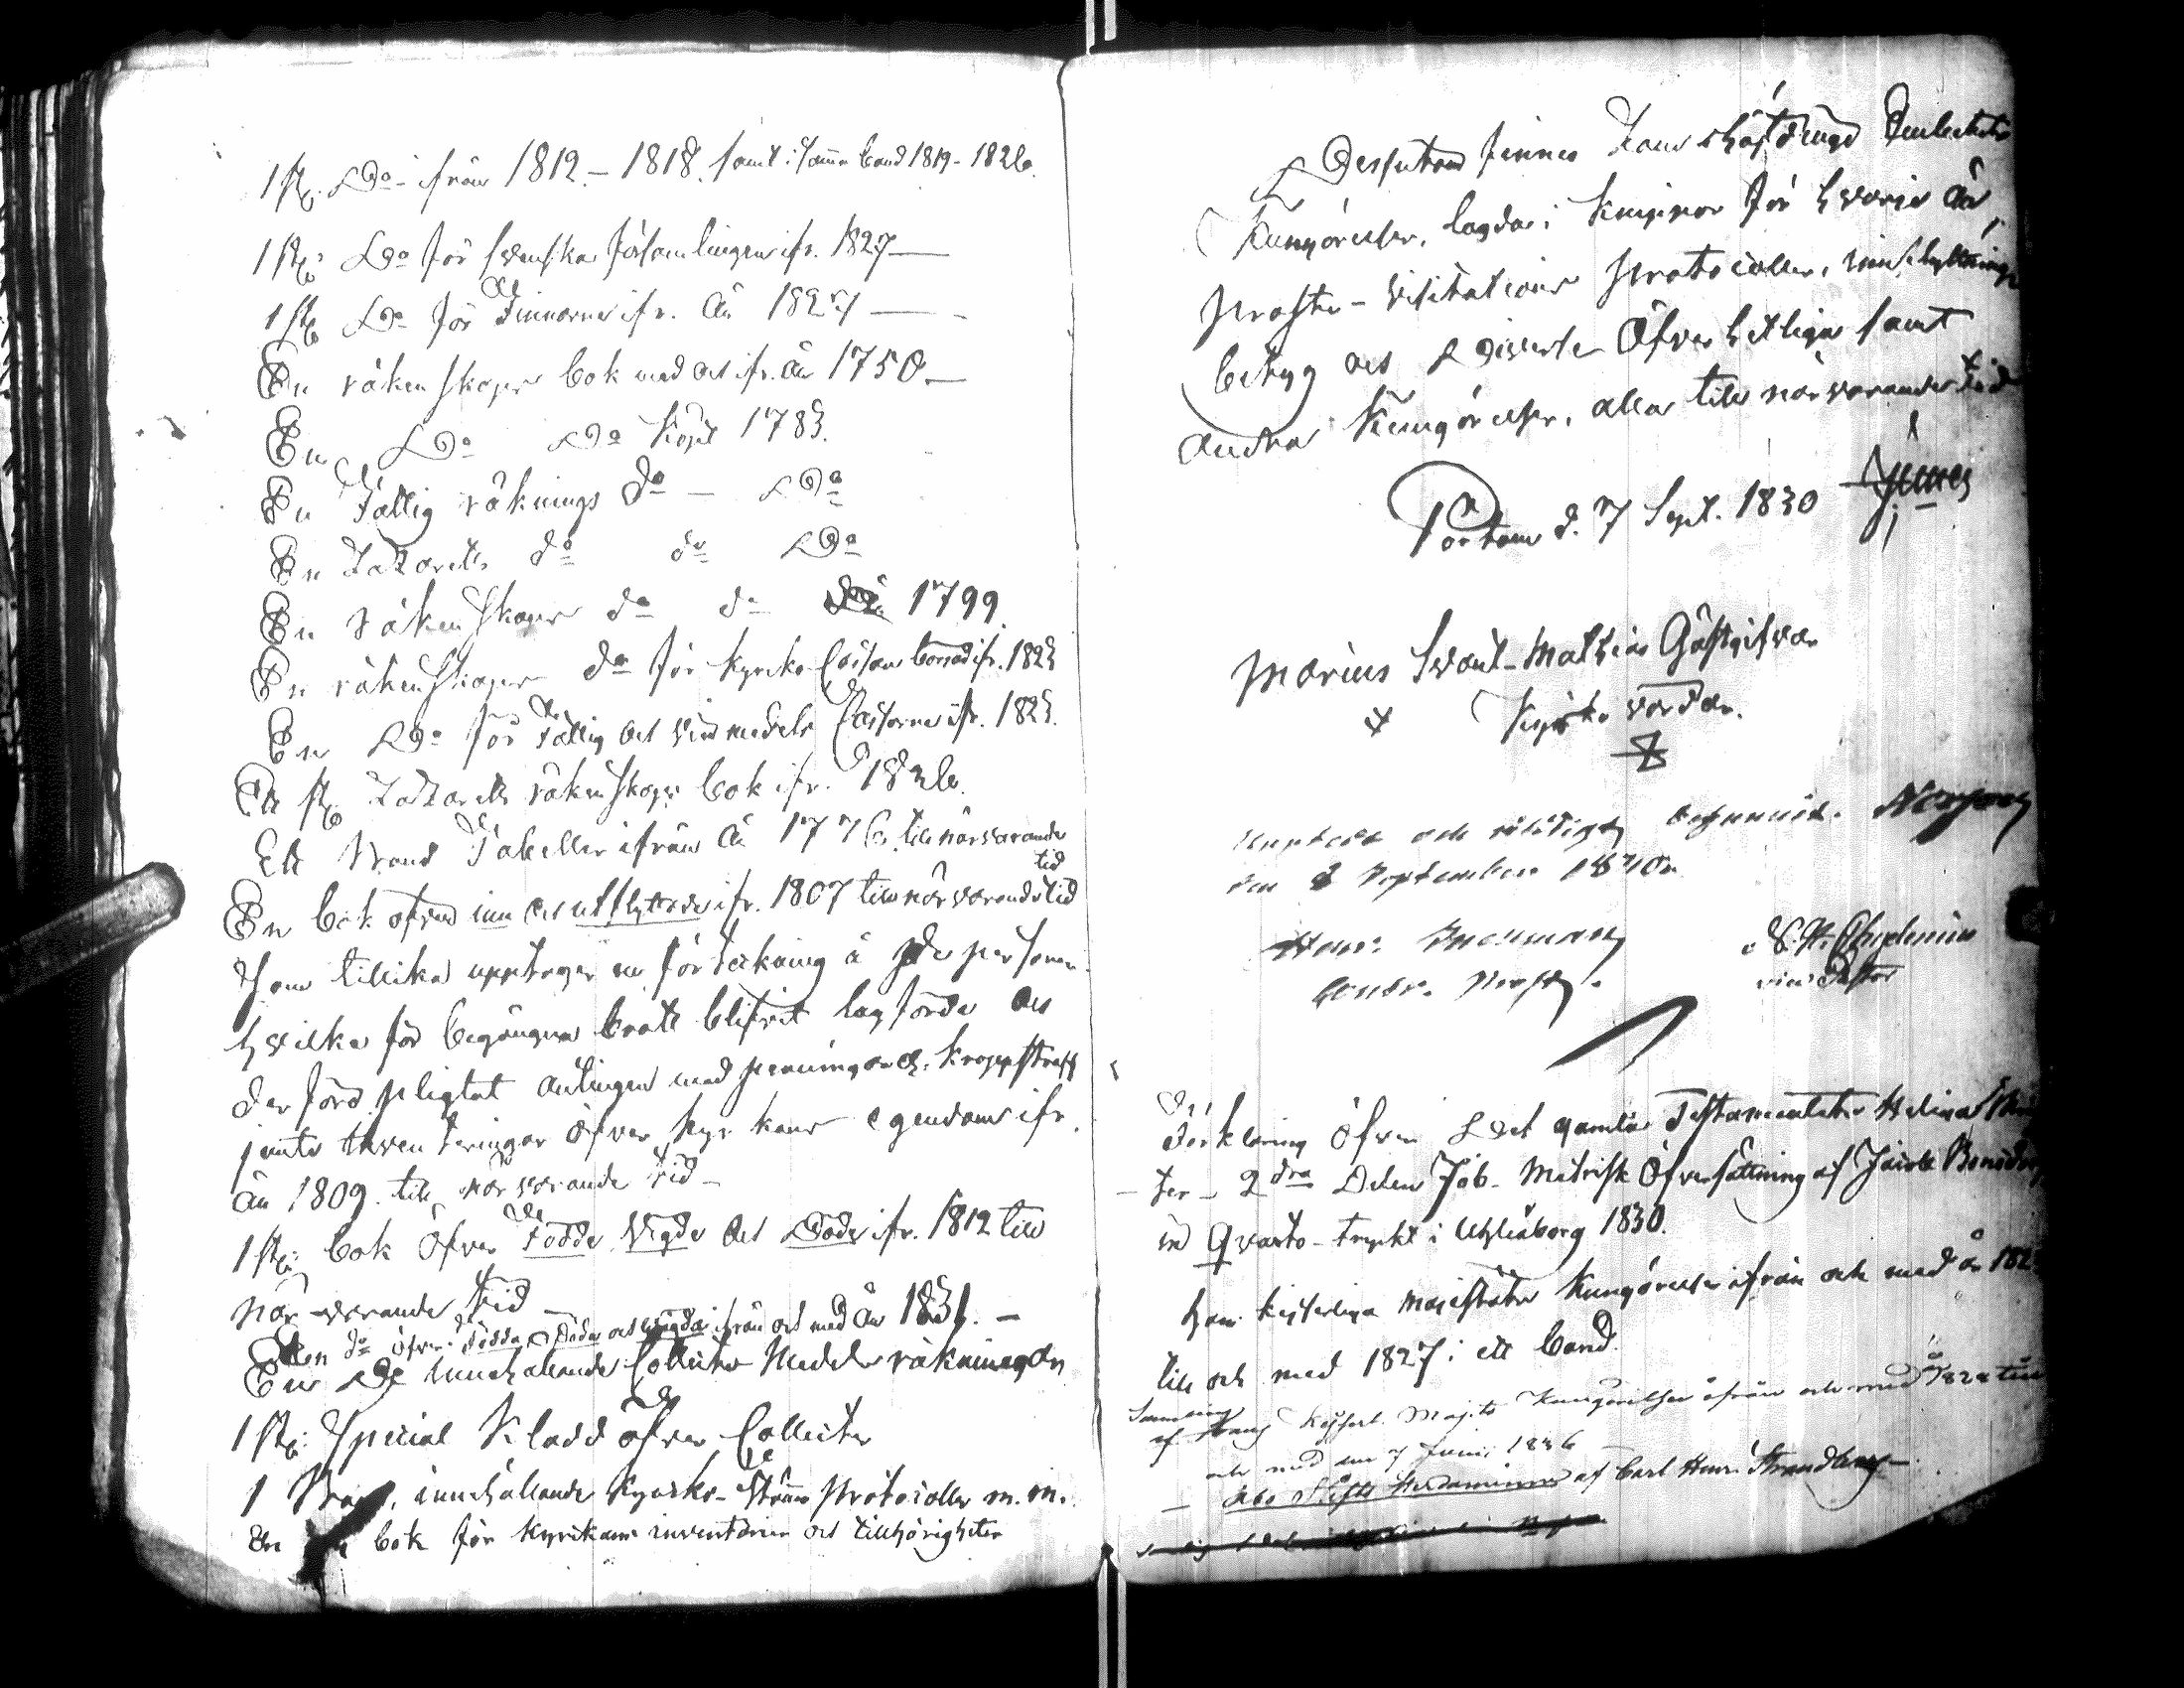 1 st. Do ifrån 1812.-1818. samt i samma band 1819-1826.
1 st. Do för svenska församlingen ifr. 1827 —
1 st. Do för Finnarne ifr. år 1827 —
En räkenskaps bok med och ifr. år 1750.—
En Do Do köpt 1783.
En Fattig räknings do - Do
En Lazaretts do do Do
En räkenskaps do do 1799.
En räkenskaps do för kyrko Cassan ifr. 1823
En Do för Fattig och medels Cassorne ifr. 1823.
Ett st. Lazaretts räkenskaps bok ifr. 1826.
Ett Band Tabeller ifrån år 1776 till närvarande
tid
En bok öfver inn och utflyttade ifr. 1807 till närvarande tid
som tillika upptager en förteckning å personer
hvilka för begångna brott blifvit lagförde och
derförd pligtat antingen med penningar el. kroppstraff
jemte inventeringar öfver kyrkans egendom ifr.
år 1809. till närvarande tid —
1 st. bok öfver Födde Vigde och Döde ifr. 1812 till
närvarande tid —
En do öfver Födda, Döda och vigda ifrån och med år 1831. —
En Do innehållande Collect Medels räkningar
1 st. Special Kladd öfver Collecter
1 Band, innehållande Kyrko-Stämme Protocoller m. m.
En bok för Kyrkans inventarier och tillhörigheter
Dessutom finnes Landshöfdinge Embetets
Kungörelser, lagda i knippor för hvarje år,
Prosте-Visitations Protocoller, innflyttnings
betyg och Diverse Öfverhetliga samt
andra Kungörelser, alla till närvarande tid
Pörtom d. 7 Sept. 1830
Marcus Svant- Mathias Gästgifvar
Kyrko värdar.
Uppläst och riktigt befunnit.
den 8 September 1830.
Contr. Prost.
vice Pastor
Förklaring öfver Det gamla Testamentets Heliga
ter - 2dra Delen Job- Metrisk Öfversättning af Jacob
in Qvarto- tryckt i Uhleåborg 1830.
Hans kejserliga Majestäts Kungörelser ifrån och med år
till och med 1827 i ett band.
Samling
af Hans Kejserl. Maj:ts Kungörelser ifrån och med år 1828 till
och med den 7 Junii 1836
— Åbo Stifts Herdaminne af Carl Henr. Strandberg —